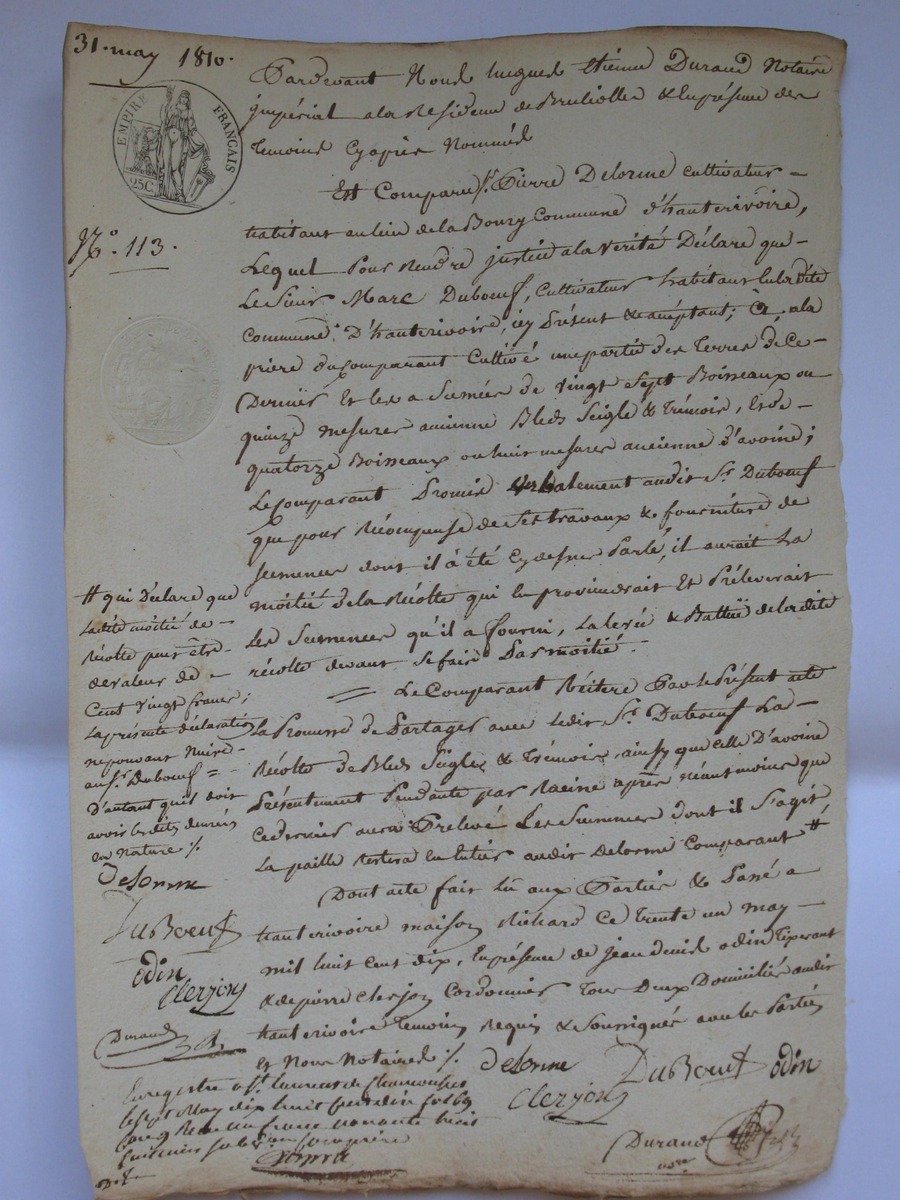 31. may 1810.
EMPIRE FRANÇAIS
25C.
N.º 113.
Pardevant Nous Etienne Durand Notaire
impérial a la Residence de & en présence des
temoins cy après Nommés
Est Comparu Sr. Pierre Delorme cultivateur
habitant au lieu de la Bourg Commune d'hauterivoire,
Lequel Pour Rendre justice a la Verité Déclare que
Le Sieur Marc Duboeuf, Cultivateur habitant
Commune D'hauterivoire, icy Présent & acceptant; a, a la
prière du Comparant Cultivé une partie des Terres de Ce
Dernier Et les a Semées de Vingt Sept Boisseaux ou
quinze mesures ancienne Bled Seigle & Trémois, Et de
quatorze Boisseaux ou huit mesures ancienne d'avoine;
Le Comparant Promis verbalement audit Sr. Duboeuf
que pour Récompense de Ses travaux & fourniture de
semences dont il à été Cy dessus Parlé, il aurait La
moitié de la Récolte qui en proviendrait Et Préleverait
Les Semences qu'il a fourni, La levée & Battue de la dite
récolte devant Se faire Par moitié.
= Le Comparant Réitere Par le Présent acte
La Promesse de Partager avec ledit Sr. Duboeuf La
Récolte de Bled Seigle & Trémois, ainsy que celle D'avoine
Présentement Pendante par Racine après néantmoins que
Ce dernier aura Prelevé Les Semences dont il S'agit,
La paille Restera en entier audit Delorme Comparant #
Dont acte fait lû aux Parties & Passé a
hauterivoire maison Richard Ce Trente un may
mil huit cent dix, En présence de Jean denis odin Tixerant
& de pierre Clerjon Cordonnier Tous Deux Domiciliés audit
hauterivoire Temoins Requis & Soussignés avec les Parties
et Nous Notaire ./.
delorme DuBoeuf odin
Clerjon
Durand
# qui Déclare que
Ladite moitié de
Récolte peut être
de valeur de
Cent vingt francs;
La présente déclaration
ne pouvant Nuire
au Sr. Duboeuf =
D'autant qu'il doit
avoir les dites denrées
en Nature ./.
delorme
DuBoeuf
odin
Clerjon
Durand
Enregistré a St. Laurent de Chamousset